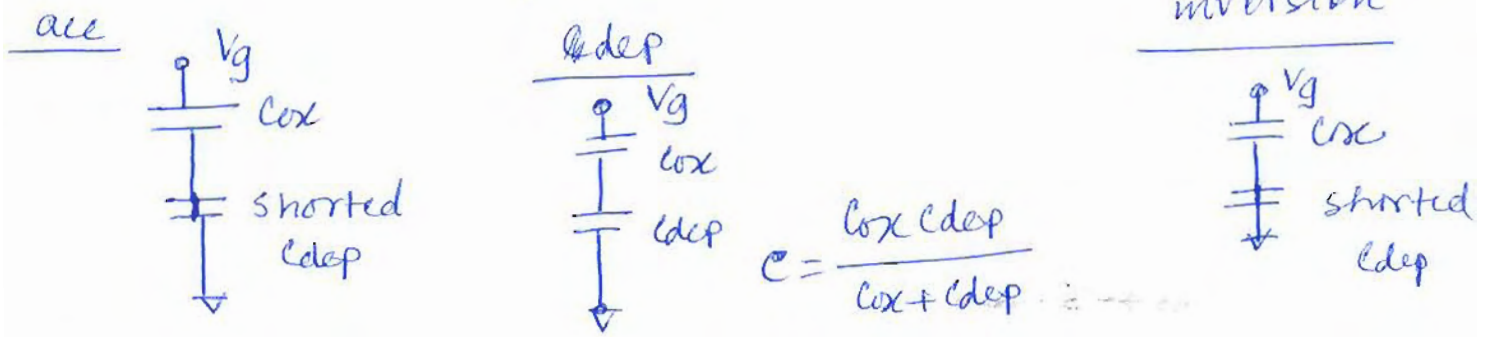 acc
Vg
Cox
shorted
Cdep
dep
Vg
Cox
Cdep
C = Cox Cdep / Cox + Cdep
inversion
Vg
Cox
shorted
Cdep